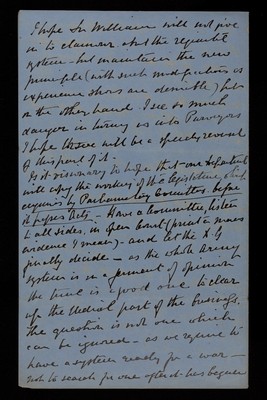 I hope Sir William will not give
in to clamour abt the regimental
system - but maintain the new
principle (with such modifications as
experience shows are desirable) but
on the other hand I see so much
danger in turning us into Purveyors
I hope there will be a speedy reversal
of this part of it.
Is it visionary to hope that our Department
will copy the working of the Legislature, which
enquires by Parliamentary Committees before
it passes Acts. Have a Committee, listen
to all sides, in open Court (print a mass
evidence I mean) - and let the S. G
finally decide - as the whole Army
system is in a ferment of opinion
the time is a good one to clear
up the Medical part of the business.
The question is not one which
can be ignored - as we require to
have a system ready for a war -
not to search for one after it has begun